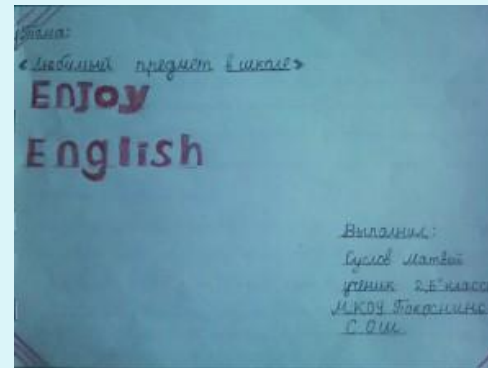 Тема:
«Любимый предмет в школе»
Enjoy
English
Выполнил:
Суслов Матвей
ученик 2 „Б" класса
МКОУ
СОШ